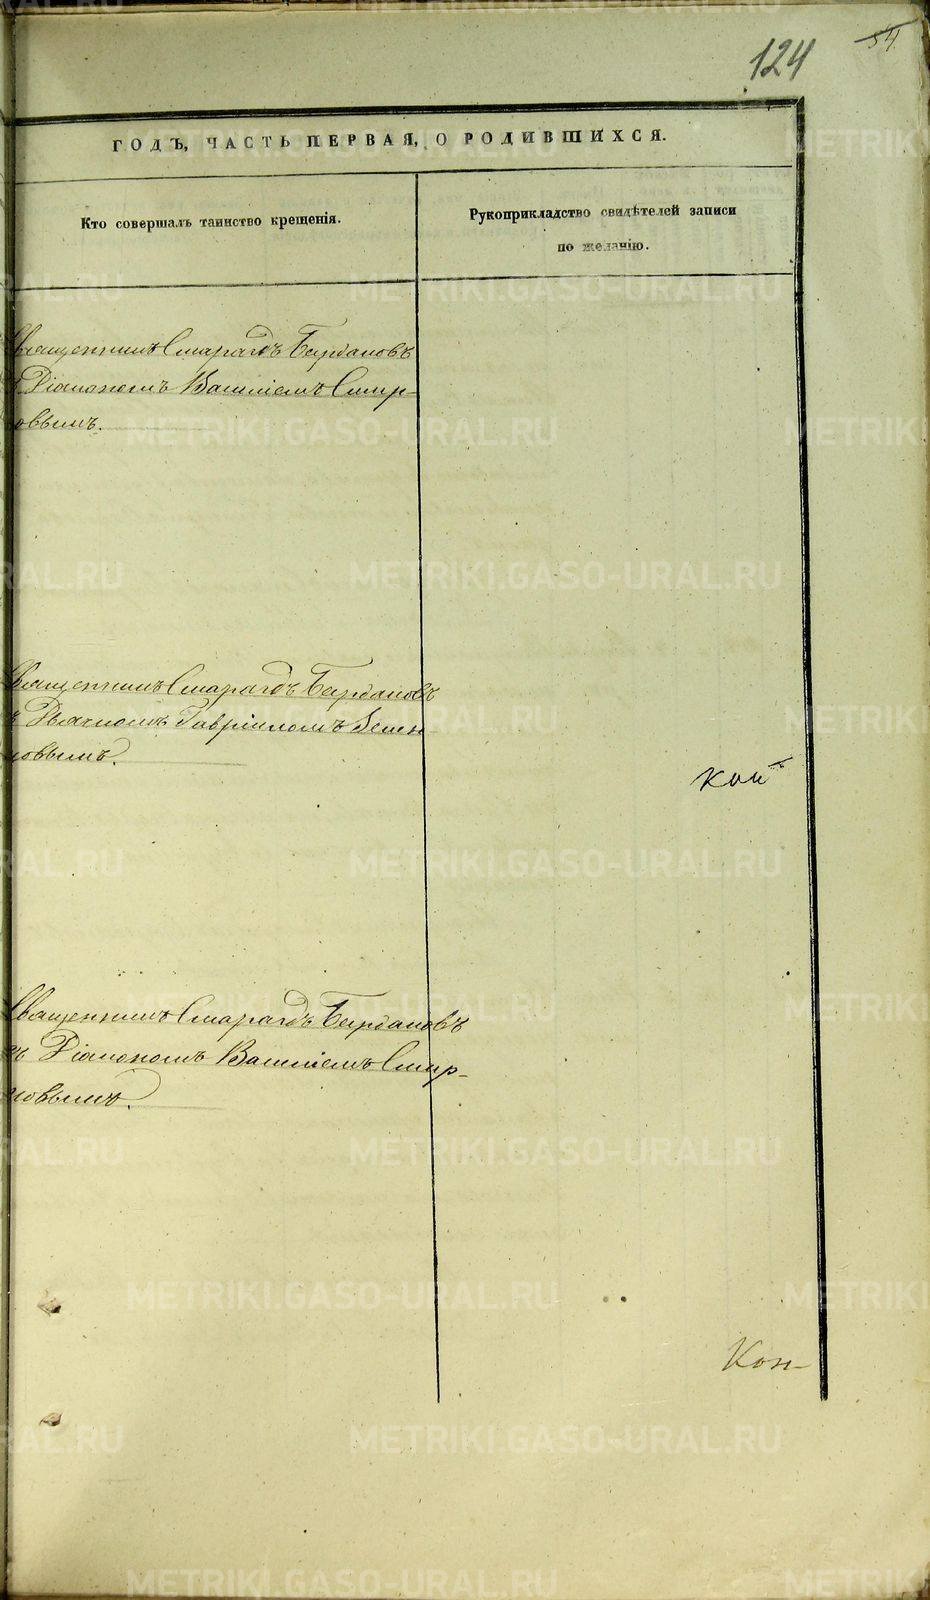 124
54.
ГОДЪ, ЧАСТЬ ПЕРВАЯ, О РОДИВШИХСЯ.
Кто совершалъ таинство крещенія.
Рукоприкладство свидѣтелей записи
по желанію.
Священникъ Смарагдъ Бардановъ
Діакономъ Василіемъ Смир-
овымъ.
Священникъ Смарагдъ Бардановъ
ъ Дьячкомъ Гавріиломъ
новымъ.
Священникъ Смарагдъ Бардановъ
съ Діакономъ Василіемъ Смир-
новымъ.
Кон-
METRIKI.GASO-URAL.RU